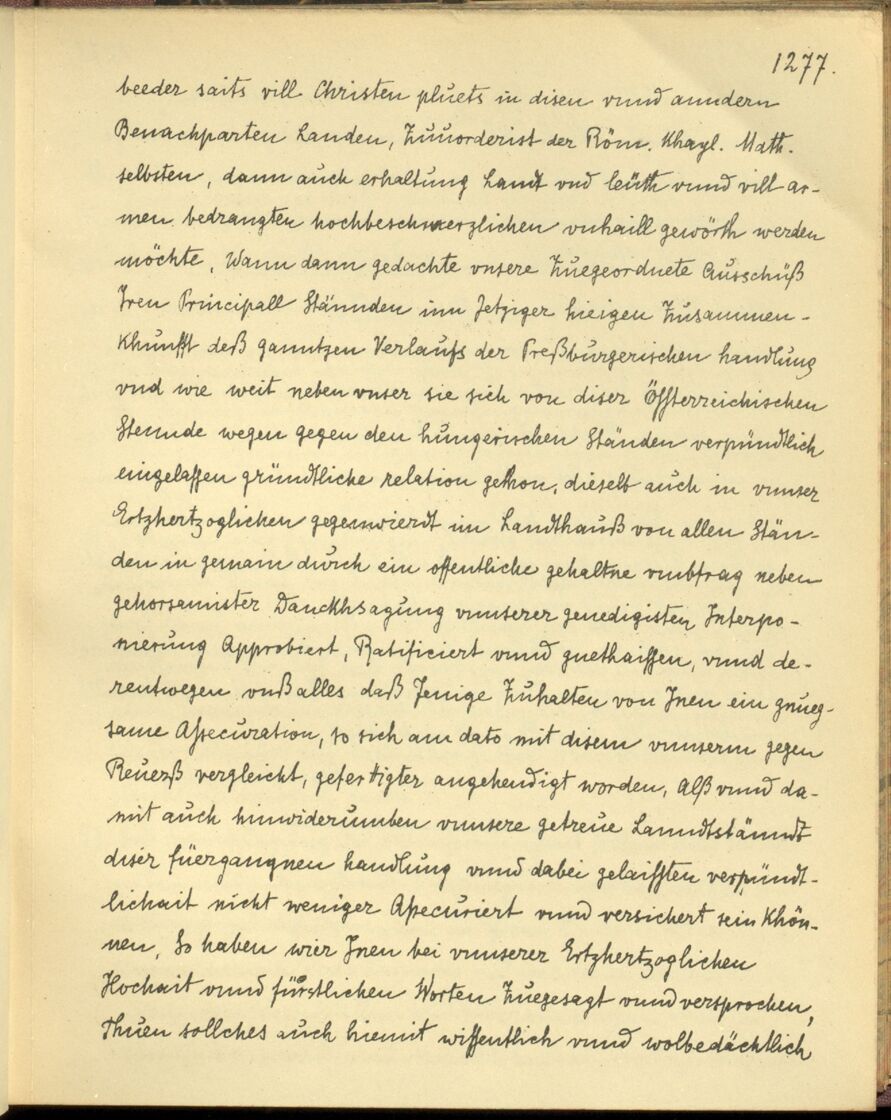 1277.
beeder saits vill Christen pluets in disen vnnd anndern
Benachparten Landen, Zuuorderist der Röm. Khayl. Math.
selbsten, dann auch erhaltung Landt vnd leüth vnnd vill ar-
men bedrangten hochbeschmerzlichen vnhaill gewörth werden
möchte, Wann dann gedachte vnsere Zuegeordnete Ausschüß
Iren Principall Stännden inn Jetziger hieigen Zusammen-
Khunfft deß ganntzen Verlaufs der Preßburgerischen handlung
vnd wie weit neben vnser sie sich von diser Össterreichischen
Stennde wegen gegen den hungerischen Ständen verpündtlich
eingelassen gründtliche relation gethon, dieselb auch in vnnser
Ertzhertzoglichen gegenwierdt im Landthauß von allen Stän-
den in gemain durch ein offentliche gehaltne vmbfrag neben
gehorsamister Danckhsagung vnnserer genedigisten Interpo-
nierung Approbiert, Ratificiert vnnd guethaissen, vnnd de-
rentwegen vnß alles daß Jenige Zuhalten von Inen ein gnueg-
same Assecuration, so sich am dato mit disem vnnserm gegen
Reuerß vergleicht, gefertigter angehendigt worden, Alß vnnd da-
mit auch hinwiderumben vnnsere getreue Lanndtstänndt
diser füergangnen handlung vnnd dabei gelaissten verpündt-
lichait nicht weniger Assecuriert vnnd versichert sein Khön-
nen, So haben wier Inen bei vnnserer Ertzhertzoglichen
Hochait vnnd fürstlichen Worten Zuegesagt vnnd versprochen,
Thuen sollches auch hiemit wissentlich vnnd wolbedächtlich